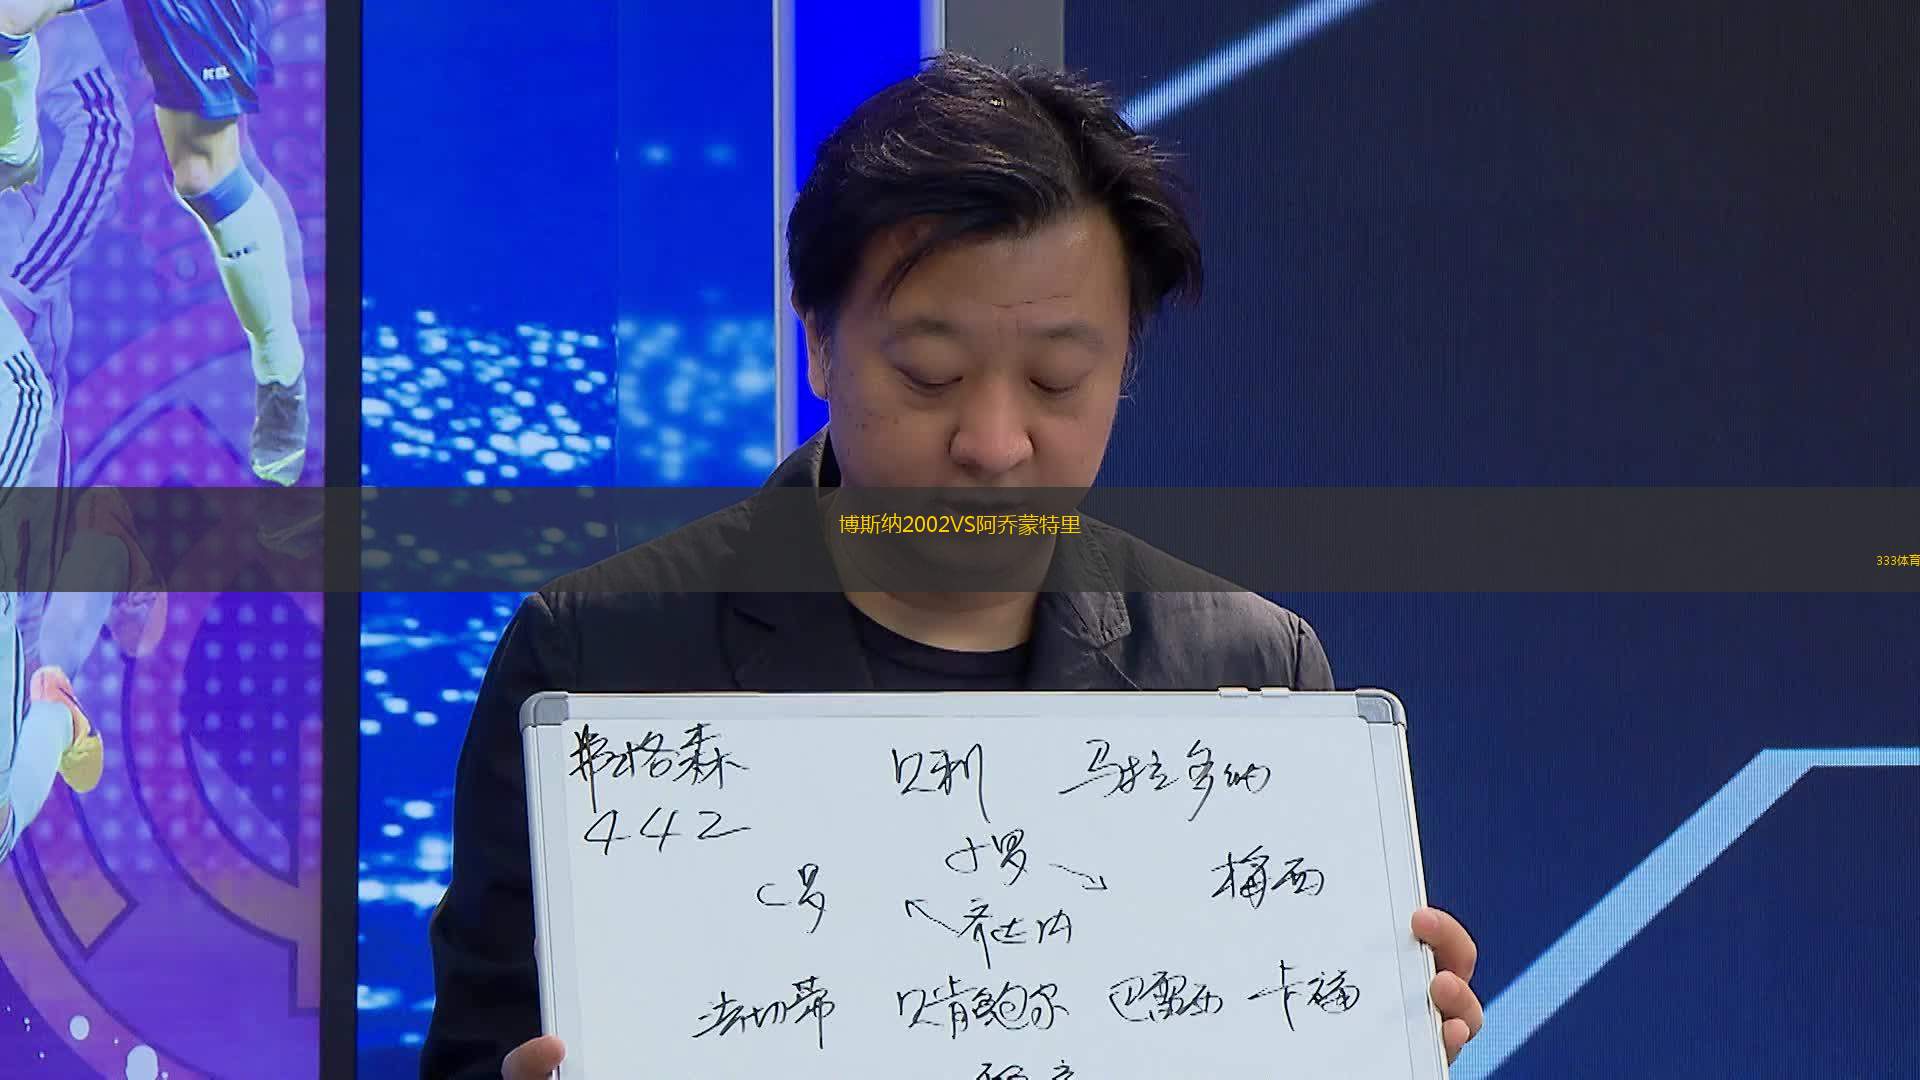 博斯纳2002VS阿乔蒙特里
333体育
弗格森 贝利 马拉多纳
442
小罗
C罗 梅西
齐达内
法切蒂 贝肯鲍尔 巴雷西 卡福